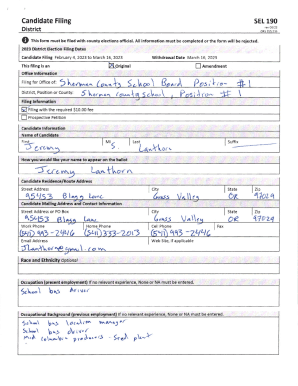 Candidate Filing
District
SEL 190
This form must be filed with county elections official. All information must be completed or the form will be rejected.
2023 District Election Filing Dates
Candidate Filing February 4, 2023 to March 16, 2023 Withdrawal Date March 16, 2023
This filing is an Original Amendment
Office Information
Filing for Office of: Sherman County School Board Position #1
District, Position or County: Sherman County school, Position #1
Filing Information
Filing with the required $10.00 fee
Prospective Petition
Candidate Information
Name of Candidate
First MI Last Suffix
Jeremy S Lanthorn
How you would like your name to appear on the ballot
Jeremy Lanthorn
Candidate Residence/Route Address
Street Address City State Zip
95453 Blagg Lane Grass Valley OR 97029
Candidate Mailing Address and Contact Information
Street Address or PO Box City State Zip
95453 Blagg Lane Grass Valley OR 97029
Work Phone Home Phone Cell Phone Fax
(541) 993-2446 (541) 333-2013 (541) 993-2446
Email Address Web Site, if applicable
Jlanthorn@gmail.com
Race and Ethnicity Optional
Occupation (present employment) If no relevant experience, None or NA must be entered.
School bus driver
Occupational Background (previous employment) If no relevant experience, None or NA must be entered.
School bus location manager
School bus driver
Mid columbia producers - Seed plant